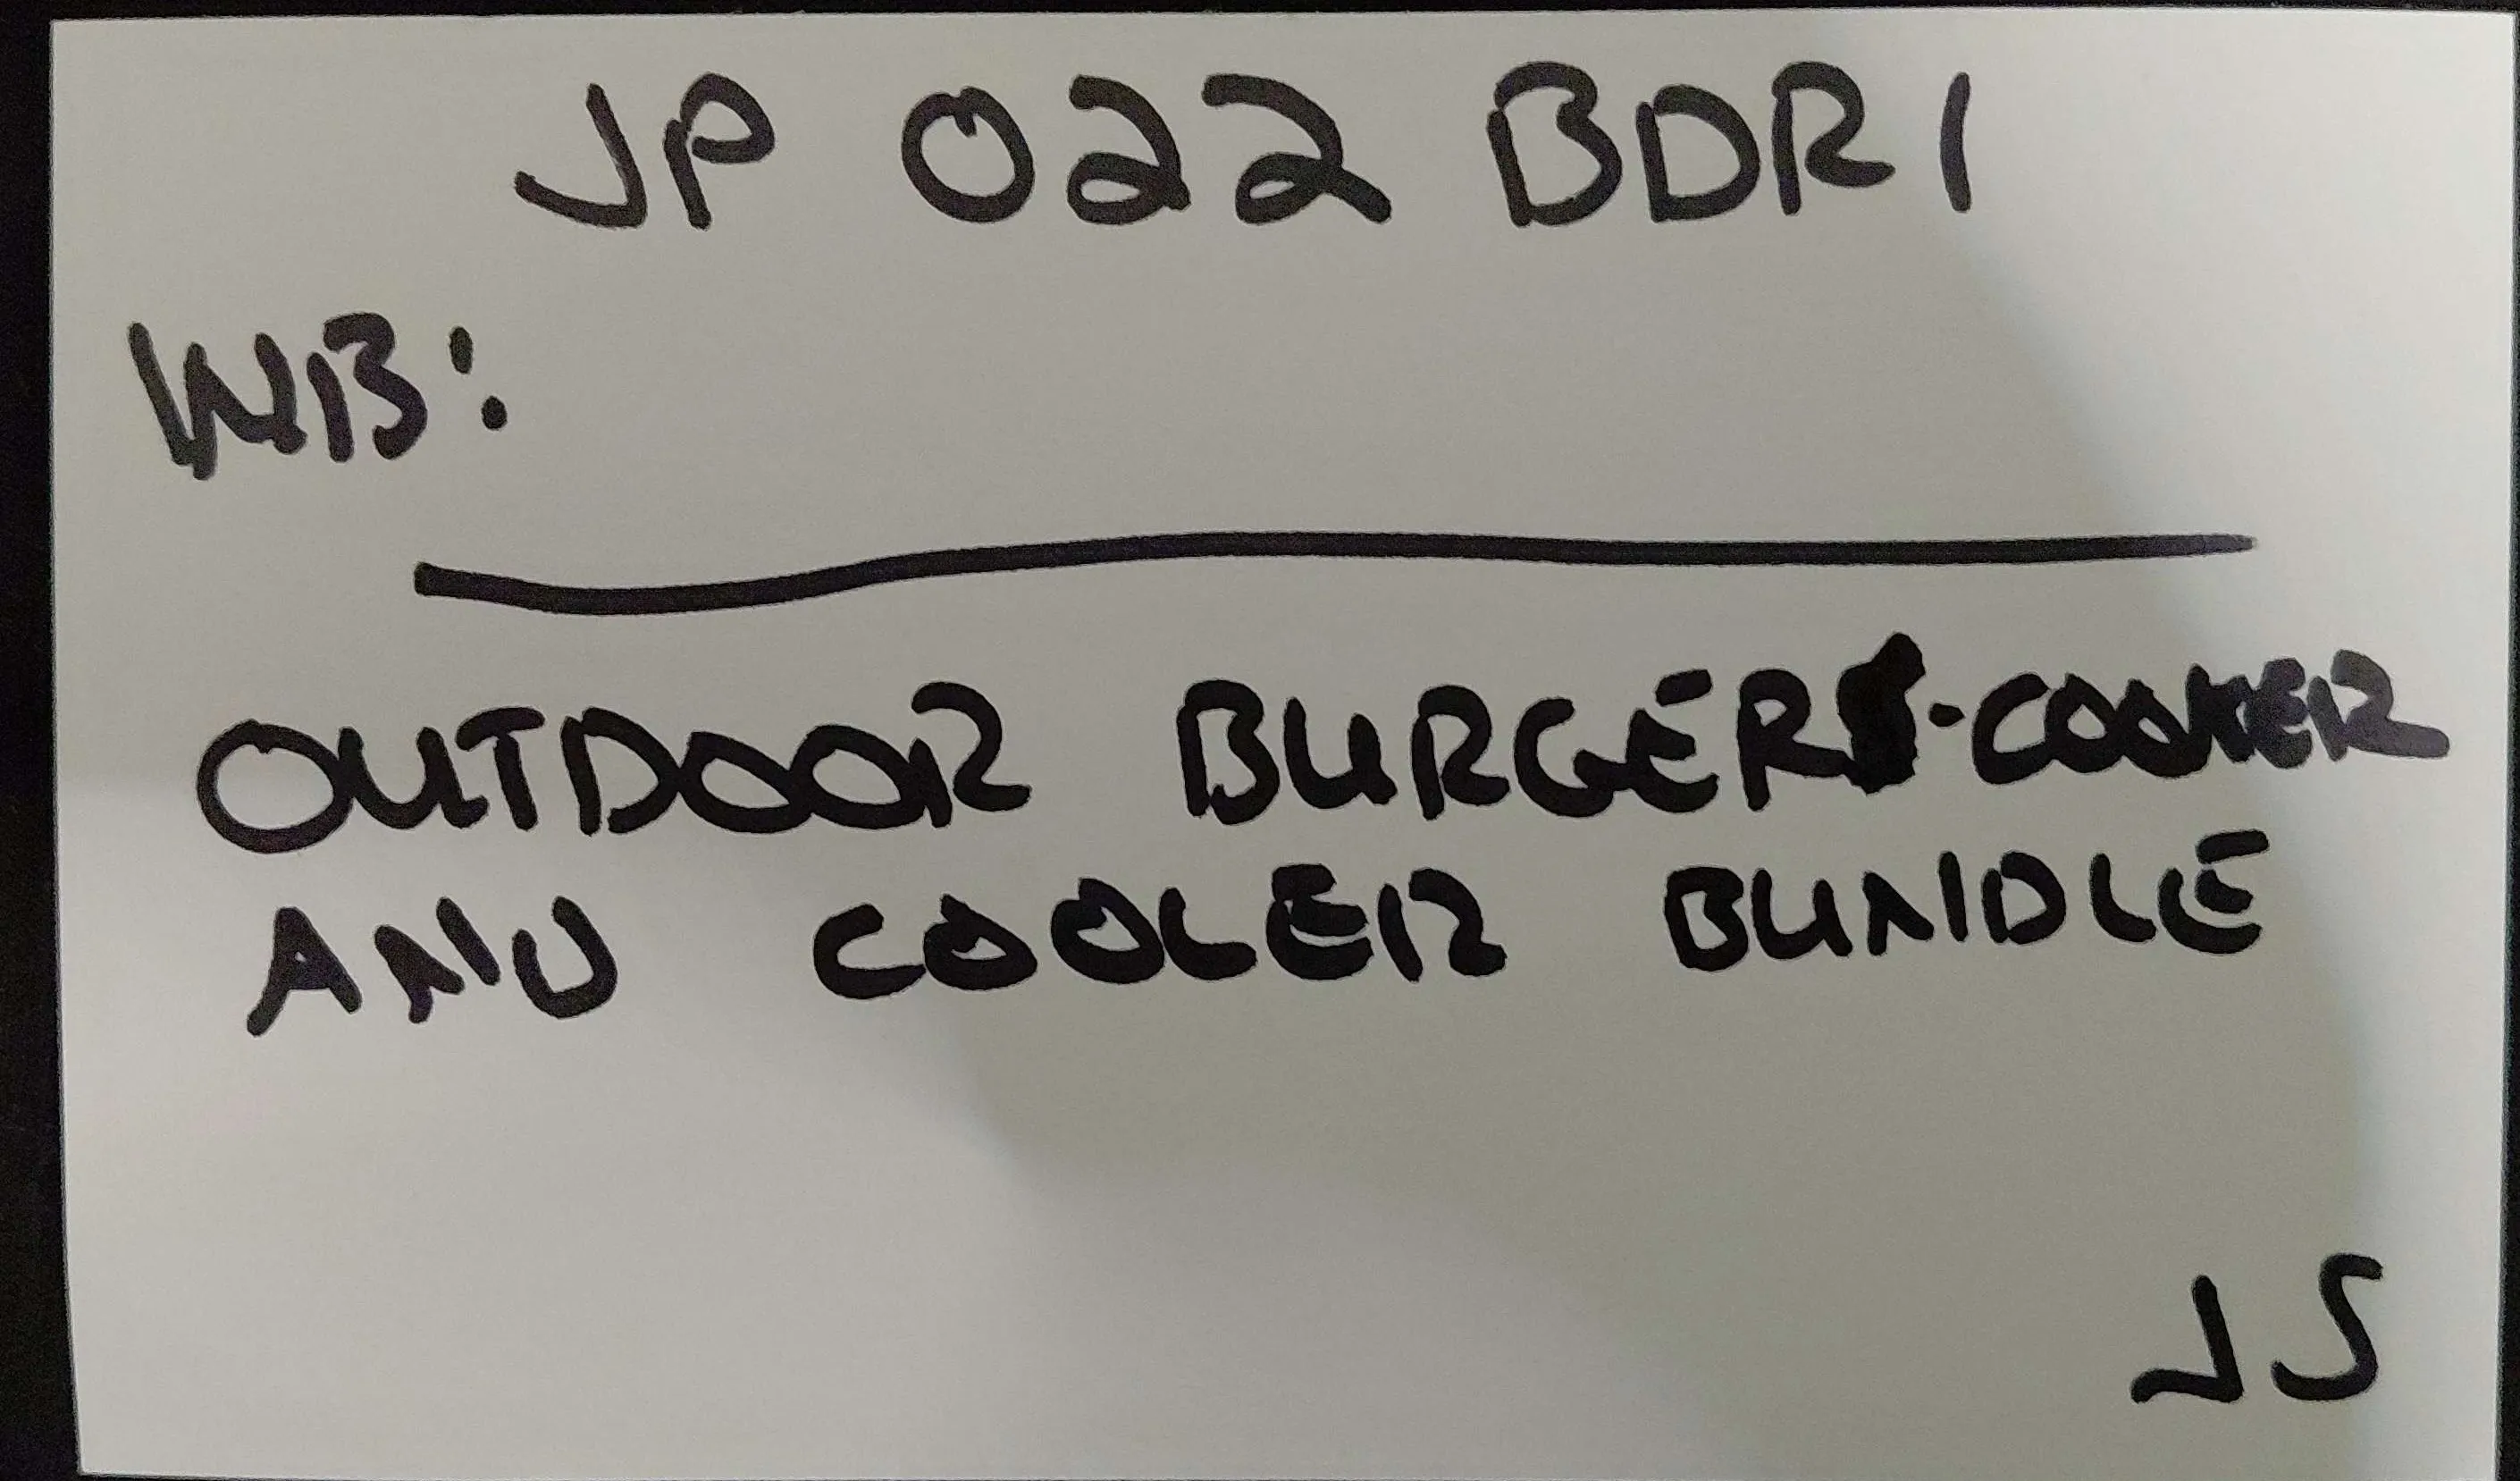 JP 022 BDR1
WB:
OUTDOOR BURGER-COOKER
AND COOLER BUNDLE
JS